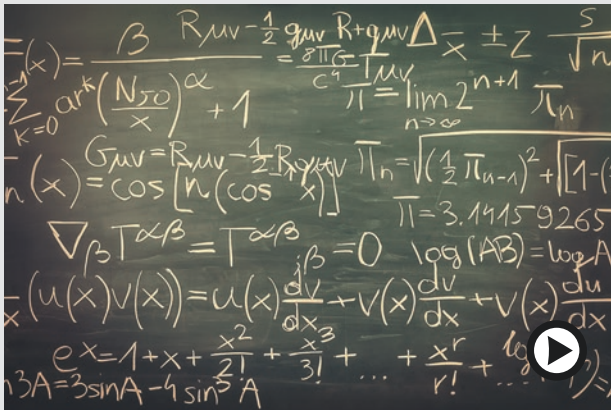 β R_μν - 1/2 g_μν R + g_μν Λ x̄ ± z s/√n
(x) = = 8πG/c⁴ T_μν
Σ k=0 ar^k (N_50/x)^α + 1 π = lim n→∞ 2^(n+1) π_n
G_μν = R_μν - 1/2 R g_μν π_n = √((1/2 π_n-1)² + [1-(
n(x) = cos[n(cos x)]
π = 3.14159265
∇_β T^αβ = T^αβ ;β = 0 log(AB) = log A
(u(x)v(x)) = u(x) dv/dx + v(x) dv/dx + v(x) du/dx
e x = 1 + x + x²/2! + x³/3! + ... + x^r/r! + ....
n3A = 3sinA - 4 sin³ A